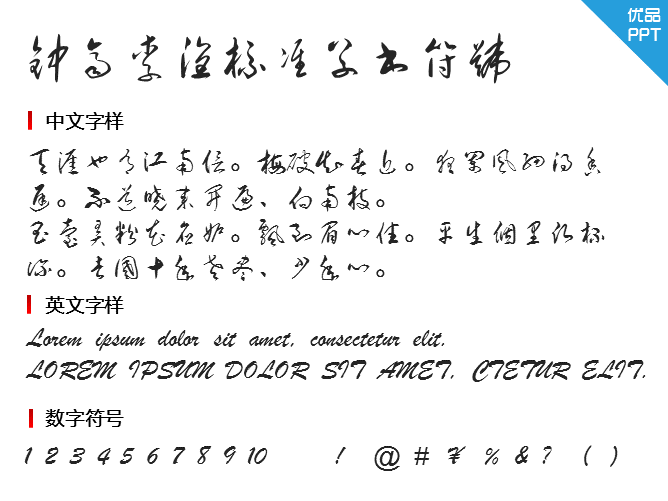 优品
PPT
钟齐李洤标准草书符號
中文字样
天涯也有江南信。梅破知春近。夜阑风细得香
迟。不道晓来开遍、向南枝。
玉台弄粉花应妒。飘到眉心住。平生個里愿杯
深。去國十年老尽、少年心。
英文字样
Lorem ipsum dolor sit amet, consectetur elit.
LOREM IPSUM DOLOR SIT AMET, CTETUR ELIT.
数字符号
1 2 3 4 5 6 7 8 9 10 ! @ # ¥ % & ? ( )